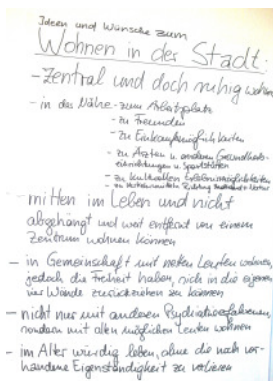 Ideen und Wünsche zum
Wohnen in der Stadt:
- Zentral und doch ruhig wohnen
- in der Nähe - zum Arbeitsplatz
- zu Freunden
- zu Einkaufsmöglichkeiten
- zu Ärzten u. anderen Gesundheits-
einrichtungen u. Sportstätten
- zu kulturellen Erlebnismöglichkeiten
- zu Verkehrsmitteln
- mitten im Leben und nicht
abgehängt und weit entfernt von einem
Zentrum wohnen können
- in Gemeinschaft mit netten Leuten wohnen,
jedoch die Freiheit haben, sich in die eigenen
vier Wände zurückziehen zu können
- nicht nur mit anderen Psychiatrieerfahrenen,
sondern mit allen möglichen Leuten wohnen
- im Alter würdig leben, ohne die noch vor-
handene Eigenständigkeit zu verlieren